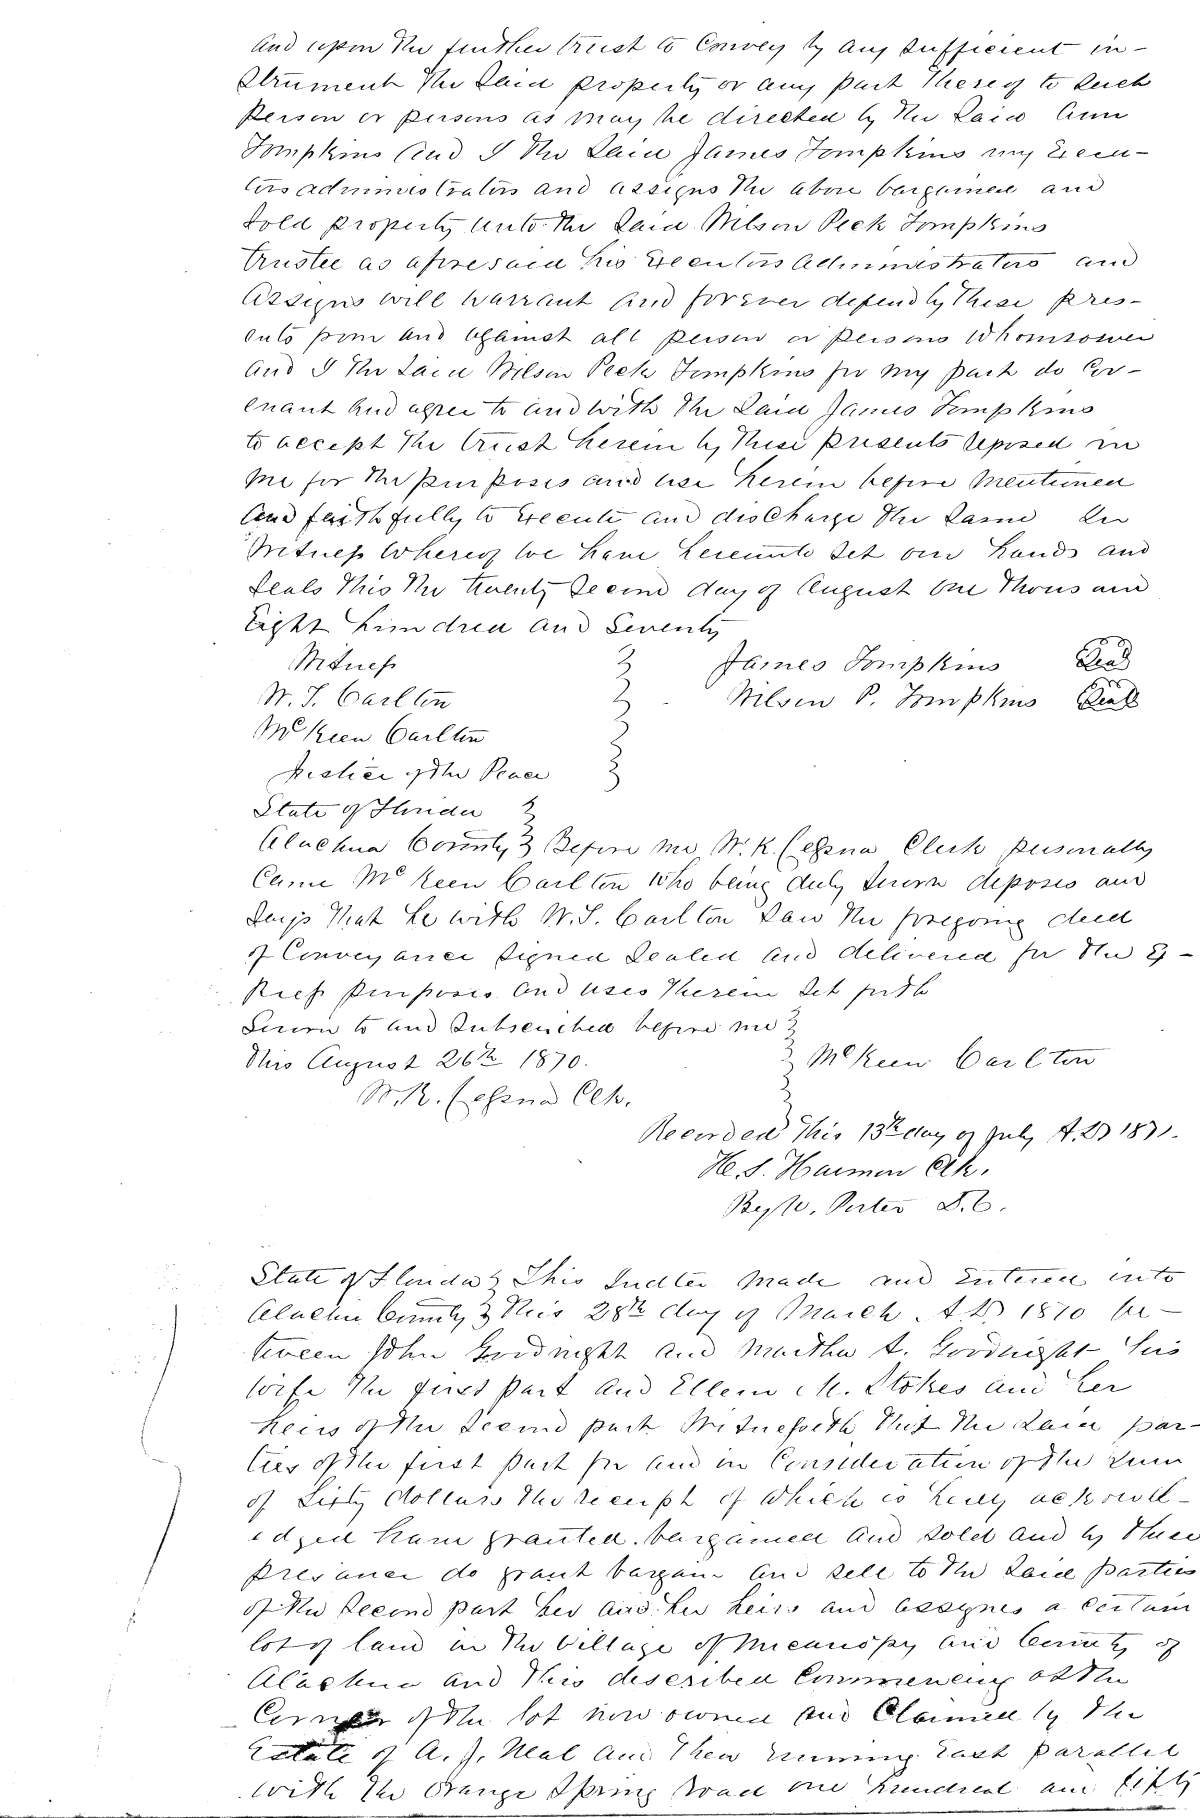 and upon the further trust to Convey by any sufficient in-
strument the Said property or any part thereof to Such
Person or persons as may be directed by the Said Ann
Tompkins and I the Said James Tompkins my Execu-
tors administrators and assigns the above bargained and
Sold property unto the Said Wilson Peek Tompkins
trustee as aforesaid his Executors Administrators and
Assigns will warrant and forever defend by these pres-
ents from and against all person or persons Whomsoever
and I the Said Wilson Peek Tompkins for my part do Cov-
enant and agree to and with the Said James Tompkins
to accept the trust herein by these presents reposed in
me for the purposes and use herein before mentioned
and faithfully to Execute and discharge the Same In
Witness Whereof We have hereunto Set our hands and
Seals this the twenty Second day of August one thousand
Eight hundred and Seventy
Witness James Tompkins Seal
W. S. Carlton Wilson P. Tompkins Seal
McKeen Carlton
Justice of the Peace
State of Florida
Alachua County Before me W. K. Cessna Clerk personally
Came McKeen Carlton Who being duly Sworn deposes and
Says that he with W. S. Carlton Saw the foregoing deed
of Conveyance Signed Sealed and delivered for the Ex-
press purposes and uses therein Set forth
Sworn to and Subscribed before me
this August 26th 1870. McKeen Carlton
W. K. Cessna Clk.
Recorded this 13th day of July A.D 1871.
H. S. Harmon Clk.
By W. Porter D. C.
State of Florida This Indter made and Entered into
Alachua County this 28th day of March A.D. 1870 be-
tween John Goodnight and Martha A. Goodnight his
wife the first part and Ellen M. Stokes and her
heirs of the Second part Witnesseth that the Said par-
ties of the first part for and in Consideration of the Sum
of Sixty dollars the receipt of which is herey acknowl-
edged have granted bargained and sold and by these
presance do grant bargain and sell to the Said parties
of the Second part her and her heirs and assignes a certain
lot of land in the village of Micanopy and County of
Alachua and this described Commencing at the
Corner of the lot now owned and Claimed by the
Estate of A. J. Neal and then running East parallel
with the Orange Spring road one hundred and fifty